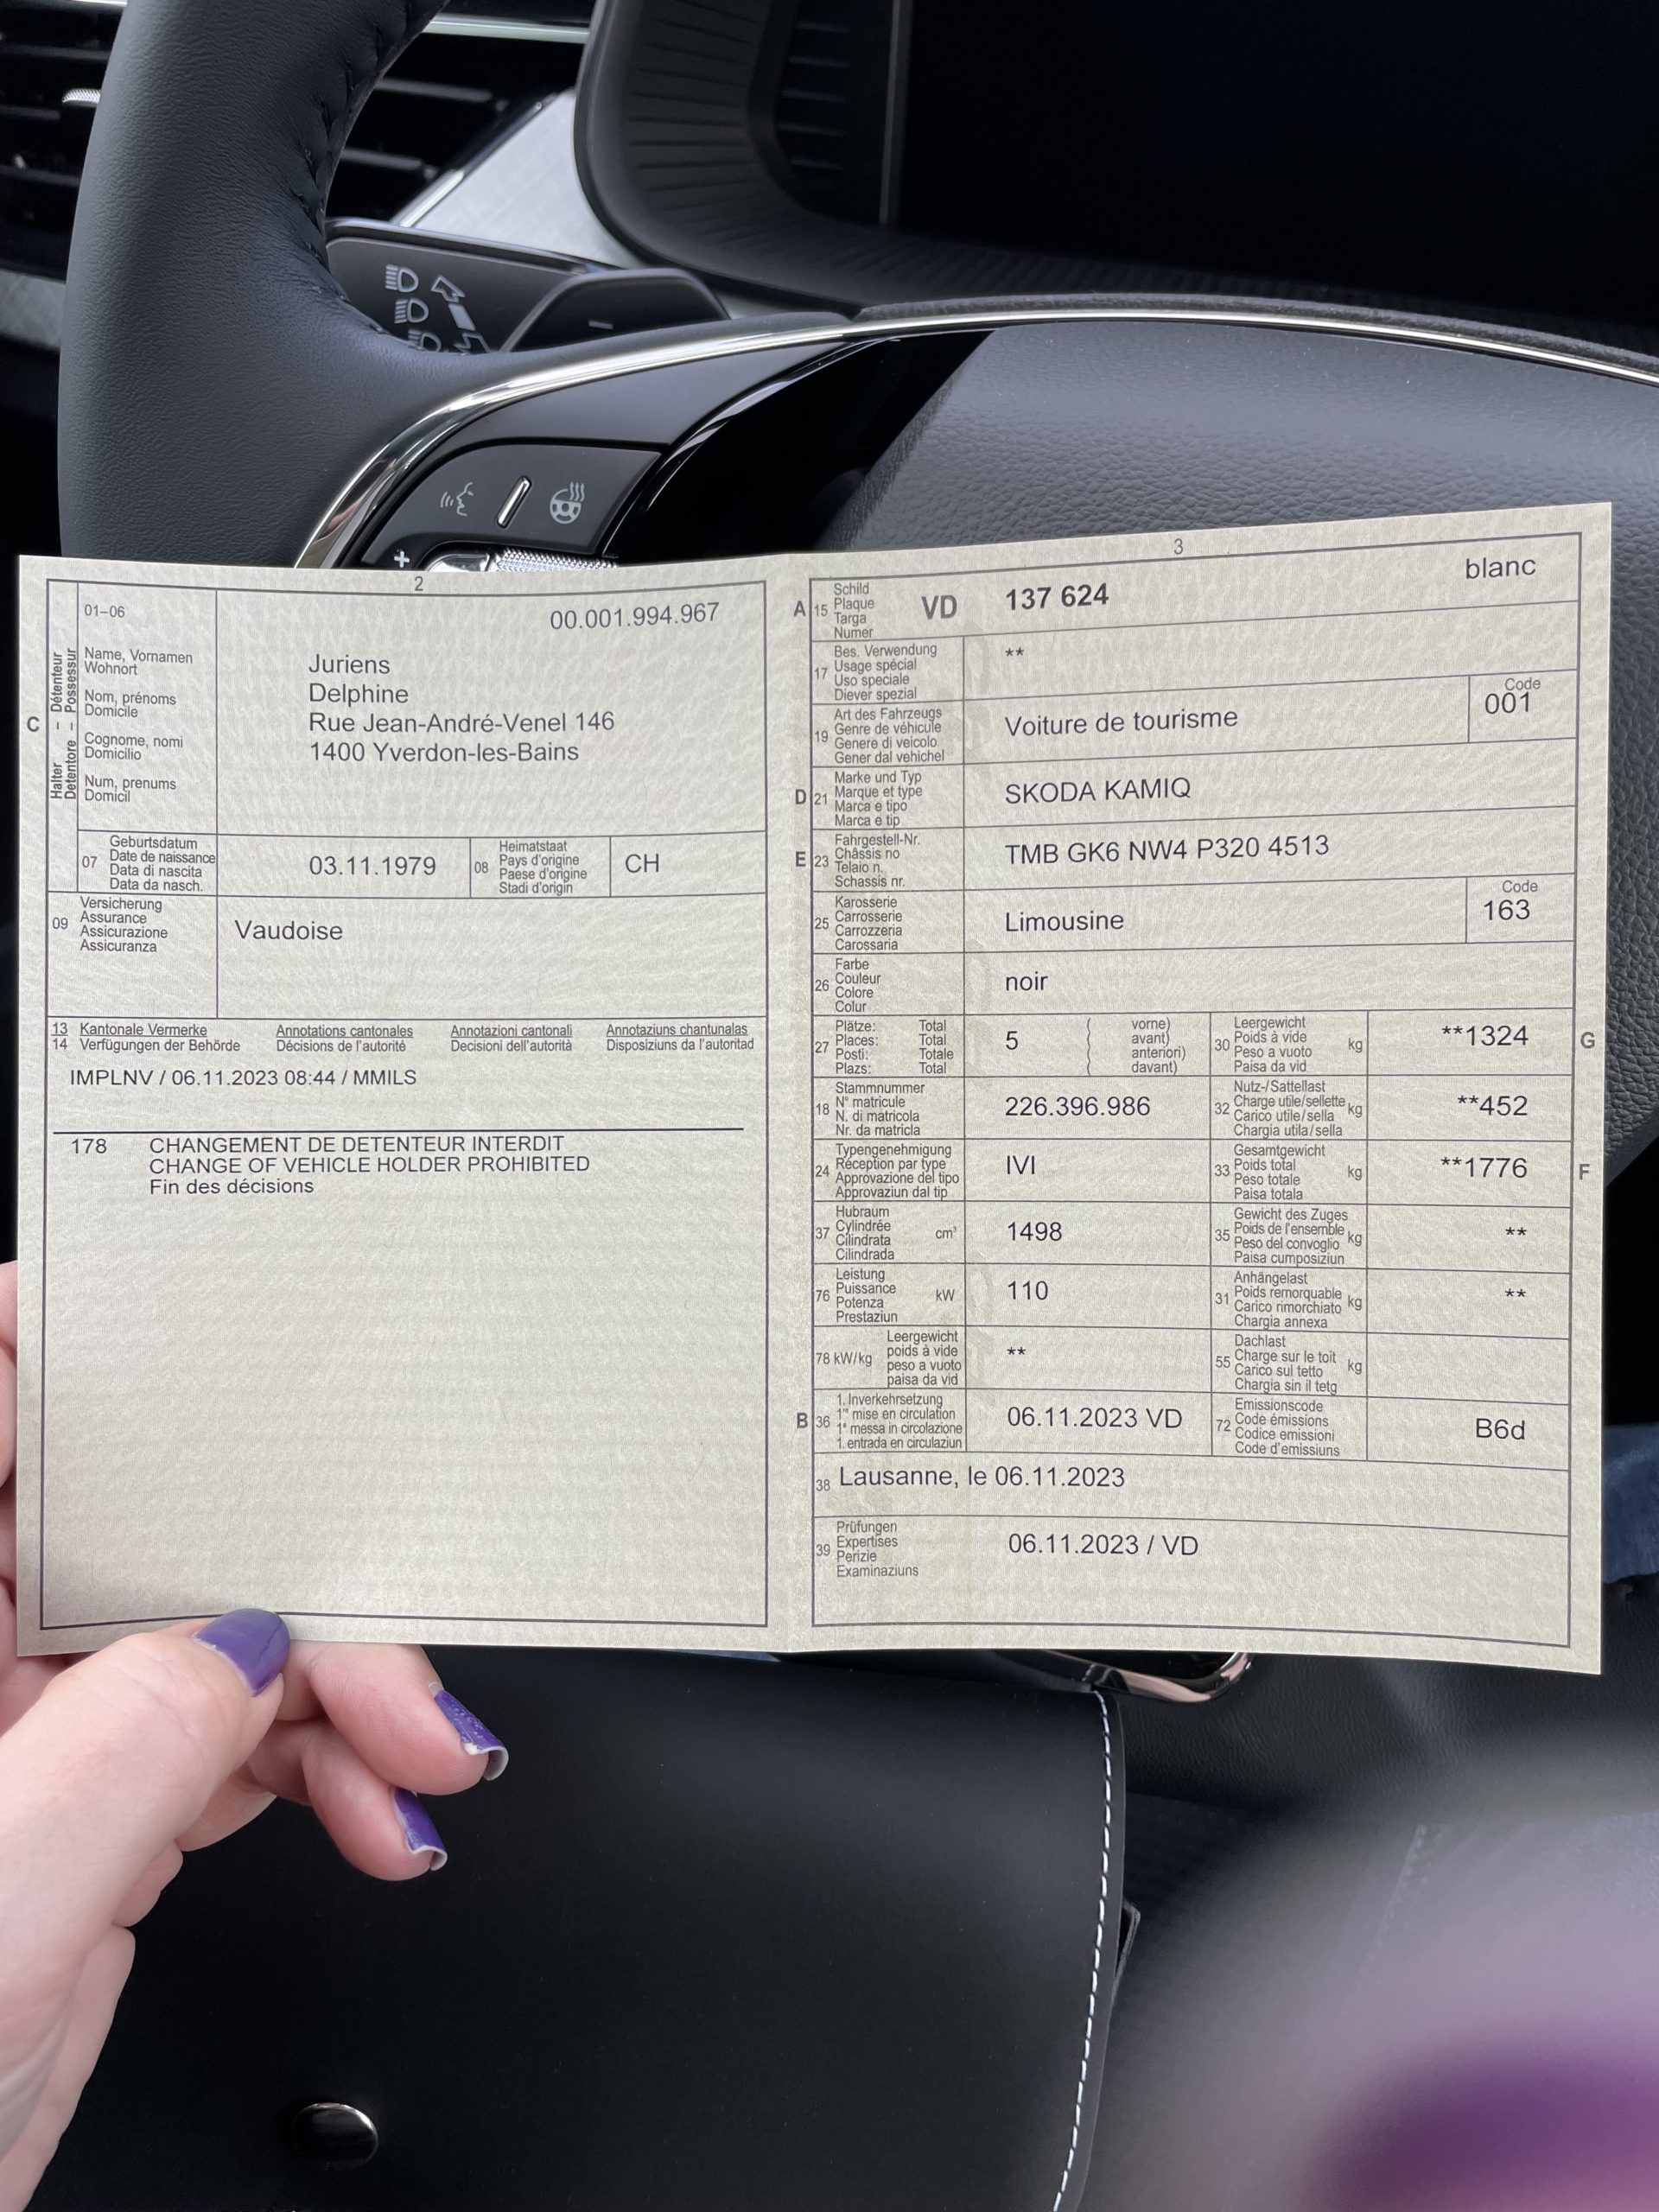 2
01–06
00.001.994.967
C
Halter – Détenteur
Detentore – Possessur
Name, Vornamen
Wohnort
Nom, prénoms
Domicile
Cognome, nomi
Domicilio
Num, prenums
Domicil
Juriens
Delphine
Rue Jean-André-Venel 146
1400 Yverdon-les-Bains
07
Geburtsdatum
Date de naissance
Data di nascita
Data da nasch.
03.11.1979
08
Heimatstaat
Pays d'origine
Paese d'origine
Stadi d'origin
CH
09
Versicherung
Assurance
Assicurazione
Assicuranza
Vaudoise
13 Kantonale Vermerke Annotations cantonales Annotazioni cantonali Annotaziuns chantunalas
14 Verfügungen der Behörde Décisions de l'autorité Decisioni dell'autorità Disposiziuns da l'autoritad
IMPLNV / 06.11.2023 08:44 / MMILS
178 CHANGEMENT DE DETENTEUR INTERDIT
CHANGE OF VEHICLE HOLDER PROHIBITED
Fin des décisions
3
A 15
Schild
Plaque
Targa
Numer
VD 137 624
blanc
17
Bes. Verwendung
Usage spécial
Uso speciale
Diever spezial
**
19
Art des Fahrzeugs
Genre de véhicule
Genere di veicolo
Gener dal vehichel
Voiture de tourisme
Code
001
D 21
Marke und Typ
Marque et type
Marca e tipo
Marca e tip
SKODA KAMIQ
E 23
Fahrgestell-Nr.
Châssis no
Telaio n.
Schassis nr.
TMB GK6 NW4 P320 4513
25
Karosserie
Carrosserie
Carrozzeria
Carossaria
Limousine
Code
163
26
Farbe
Couleur
Colore
Colur
noir
27
Plätze: Total
Places: Total
Posti: Totale
Plazs: Total
5
( vorne)
( avant)
( anteriori)
( davant)
30
Leergewicht
Poids à vide
Peso a vuoto
Paisa da vid
kg
**1324
G
18
Stammnummer
N° matricule
N. di matricola
Nr. da matricla
226.396.986
32
Nutz-/Sattellast
Charge utile/sellette
Carico utile/sella
Chargia utila/sella
kg
**452
24
Typengenehmigung
Réception par type
Approvazione del tipo
Approvaziun dal tip
IVI
33
Gesamtgewicht
Poids total
Peso totale
Paisa totala
kg
**1776
F
37
Hubraum
Cylindrée
Cilindrata
Cilindrada
cm³
1498
35
Gewicht des Zuges
Poids de l'ensemble
Peso del convoglio
Paisa cumposiziun
kg
**
76
Leistung
Puissance
Potenza
Prestaziun
kW
110
31
Anhängelast
Poids remorquable
Carico rimorchiato
Chargia annexa
kg
**
78 kW/kg
Leergewicht
poids à vide
peso a vuoto
paisa da vid
**
55
Dachlast
Charge sur le toit
Carico sul tetto
Chargia sin il tetg
kg
B 36
1. Inverkehrsetzung
1re mise en circulation
1a messa in circolazione
1. entrada en circulaziun
06.11.2023 VD
72
Emissionscode
Code émissions
Codice emissioni
Code d'emissiuns
B6d
38 Lausanne, le 06.11.2023
39
Prüfungen
Expertises
Perizie
Examinaziuns
06.11.2023 / VD